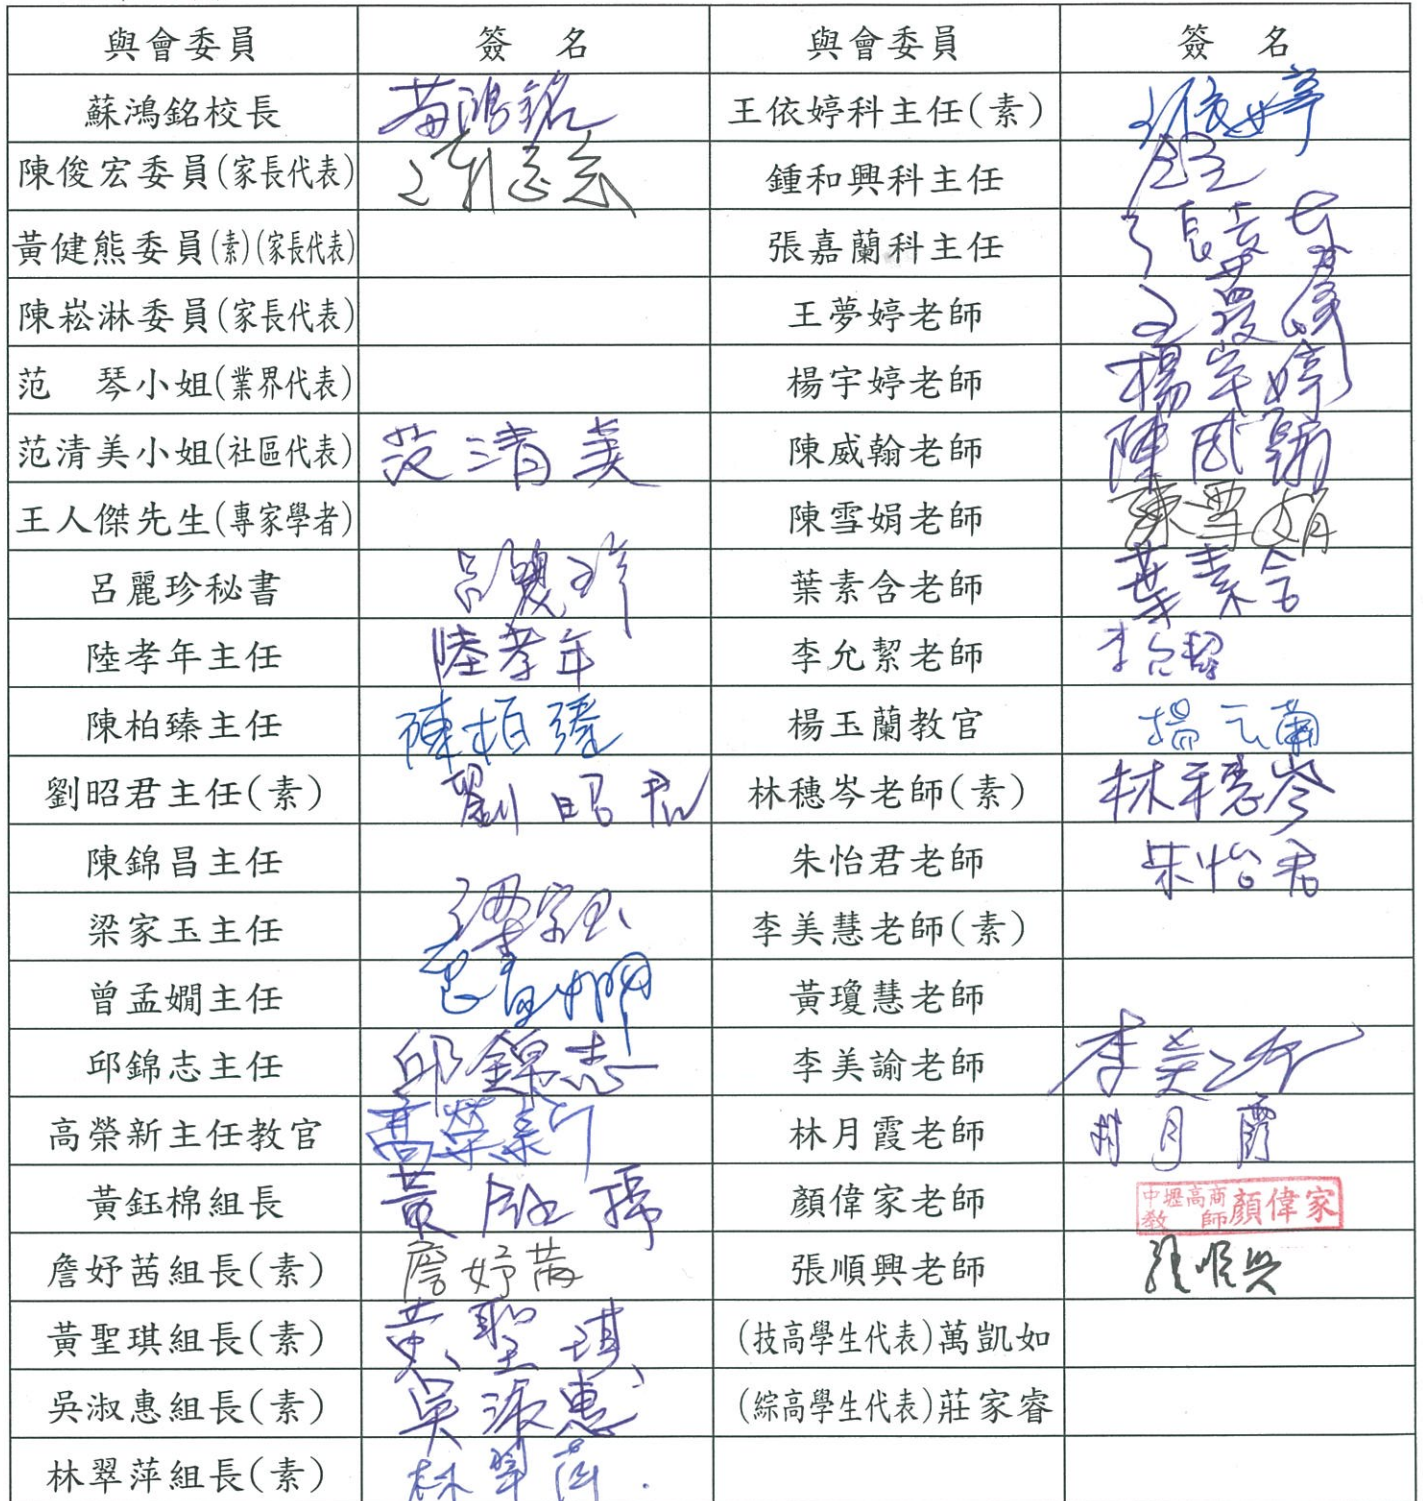 與會委員 簽 名 與會委員 簽 名
蘇鴻銘校長 王依婷科主任(素)
陳俊宏委員(家長代表) 鍾和興科主任
黃健熊委員(素)(家長代表) 張嘉蘭科主任
陳崧淋委員(家長代表) 王夢婷老師
范 琴小姐(業界代表) 楊宇婷老師 楊宇婷
范清美小姐(社區代表) 范清美 陳威翰老師 陳威翰
王人傑先生(專家學者) 陳雪娟老師 陳雪娟
呂麗珍秘書 呂麗珍 葉素含老師 葉素含
陸孝年主任 陸孝年 李允絜老師 李允絜
陳柏臻主任 陳柏臻 楊玉蘭教官 楊玉蘭
劉昭君主任(素) 劉昭君 林穗岑老師(素) 林穗岑
陳錦昌主任 朱怡君老師 朱怡君
梁家玉主任 李美慧老師(素)
曾孟嫺主任 黃瓊慧老師
邱錦志主任 邱錦志 李美諭老師 李美諭
高榮新主任教官 高榮新 林月霞老師 林月霞
黃鈺棉組長 黃鈺棉 顏偉家老師 中壢高商教師顏偉家
詹妤茜組長(素) 詹妤茜 張順興老師 張順興
黃聖琪組長(素) 黃聖琪 (技高學生代表)萬凱如
吳淑惠組長(素) 吳淑惠 (綜高學生代表)莊家睿
林翠萍組長(素) 林翠萍